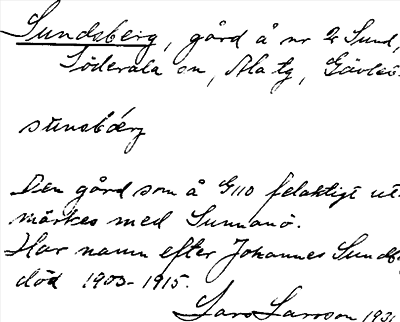 Sundsberg, gård å nr 2 Sund,
Söderala sn, Ala tg, Gävleb.
sŭnsbærj
Den gård som å G110 felaktigt ut-
märkes med Sunnanö.
Har namn efter Johannes Sundb
död 1903-1915.
Lars Larsson 1931